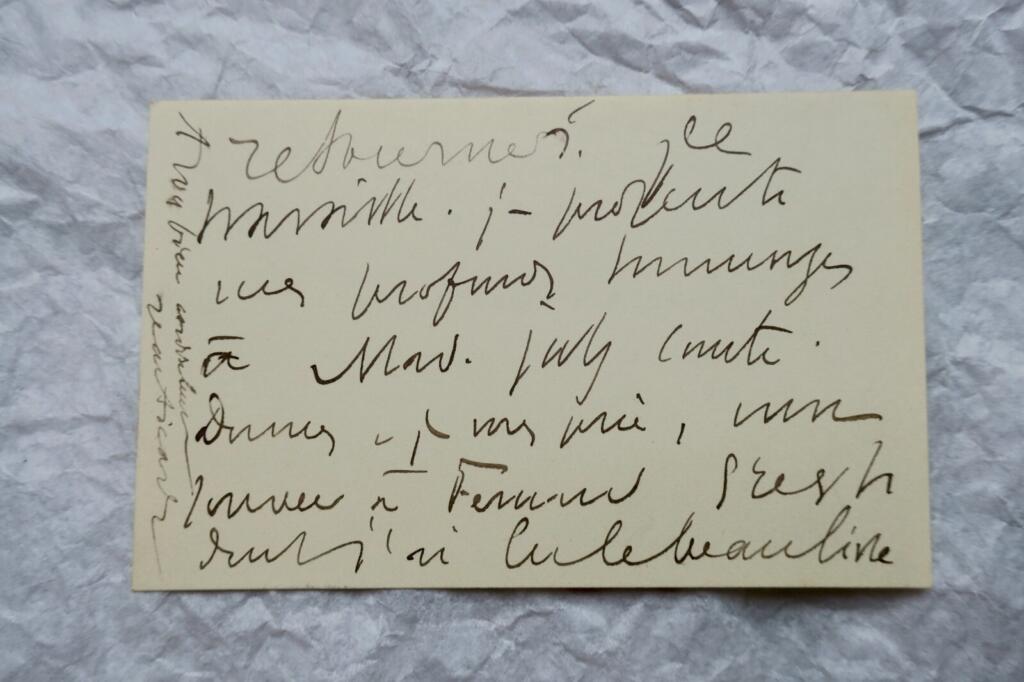 retournes. Je
travaille. je présente
mes profonds hommages
à Mad. July conte.
Donnez - je vous prie, mon
souvenir à Fernand Gregh
dont j'ai lu le beau livre
A vous bien cordialement
Jean Ricard